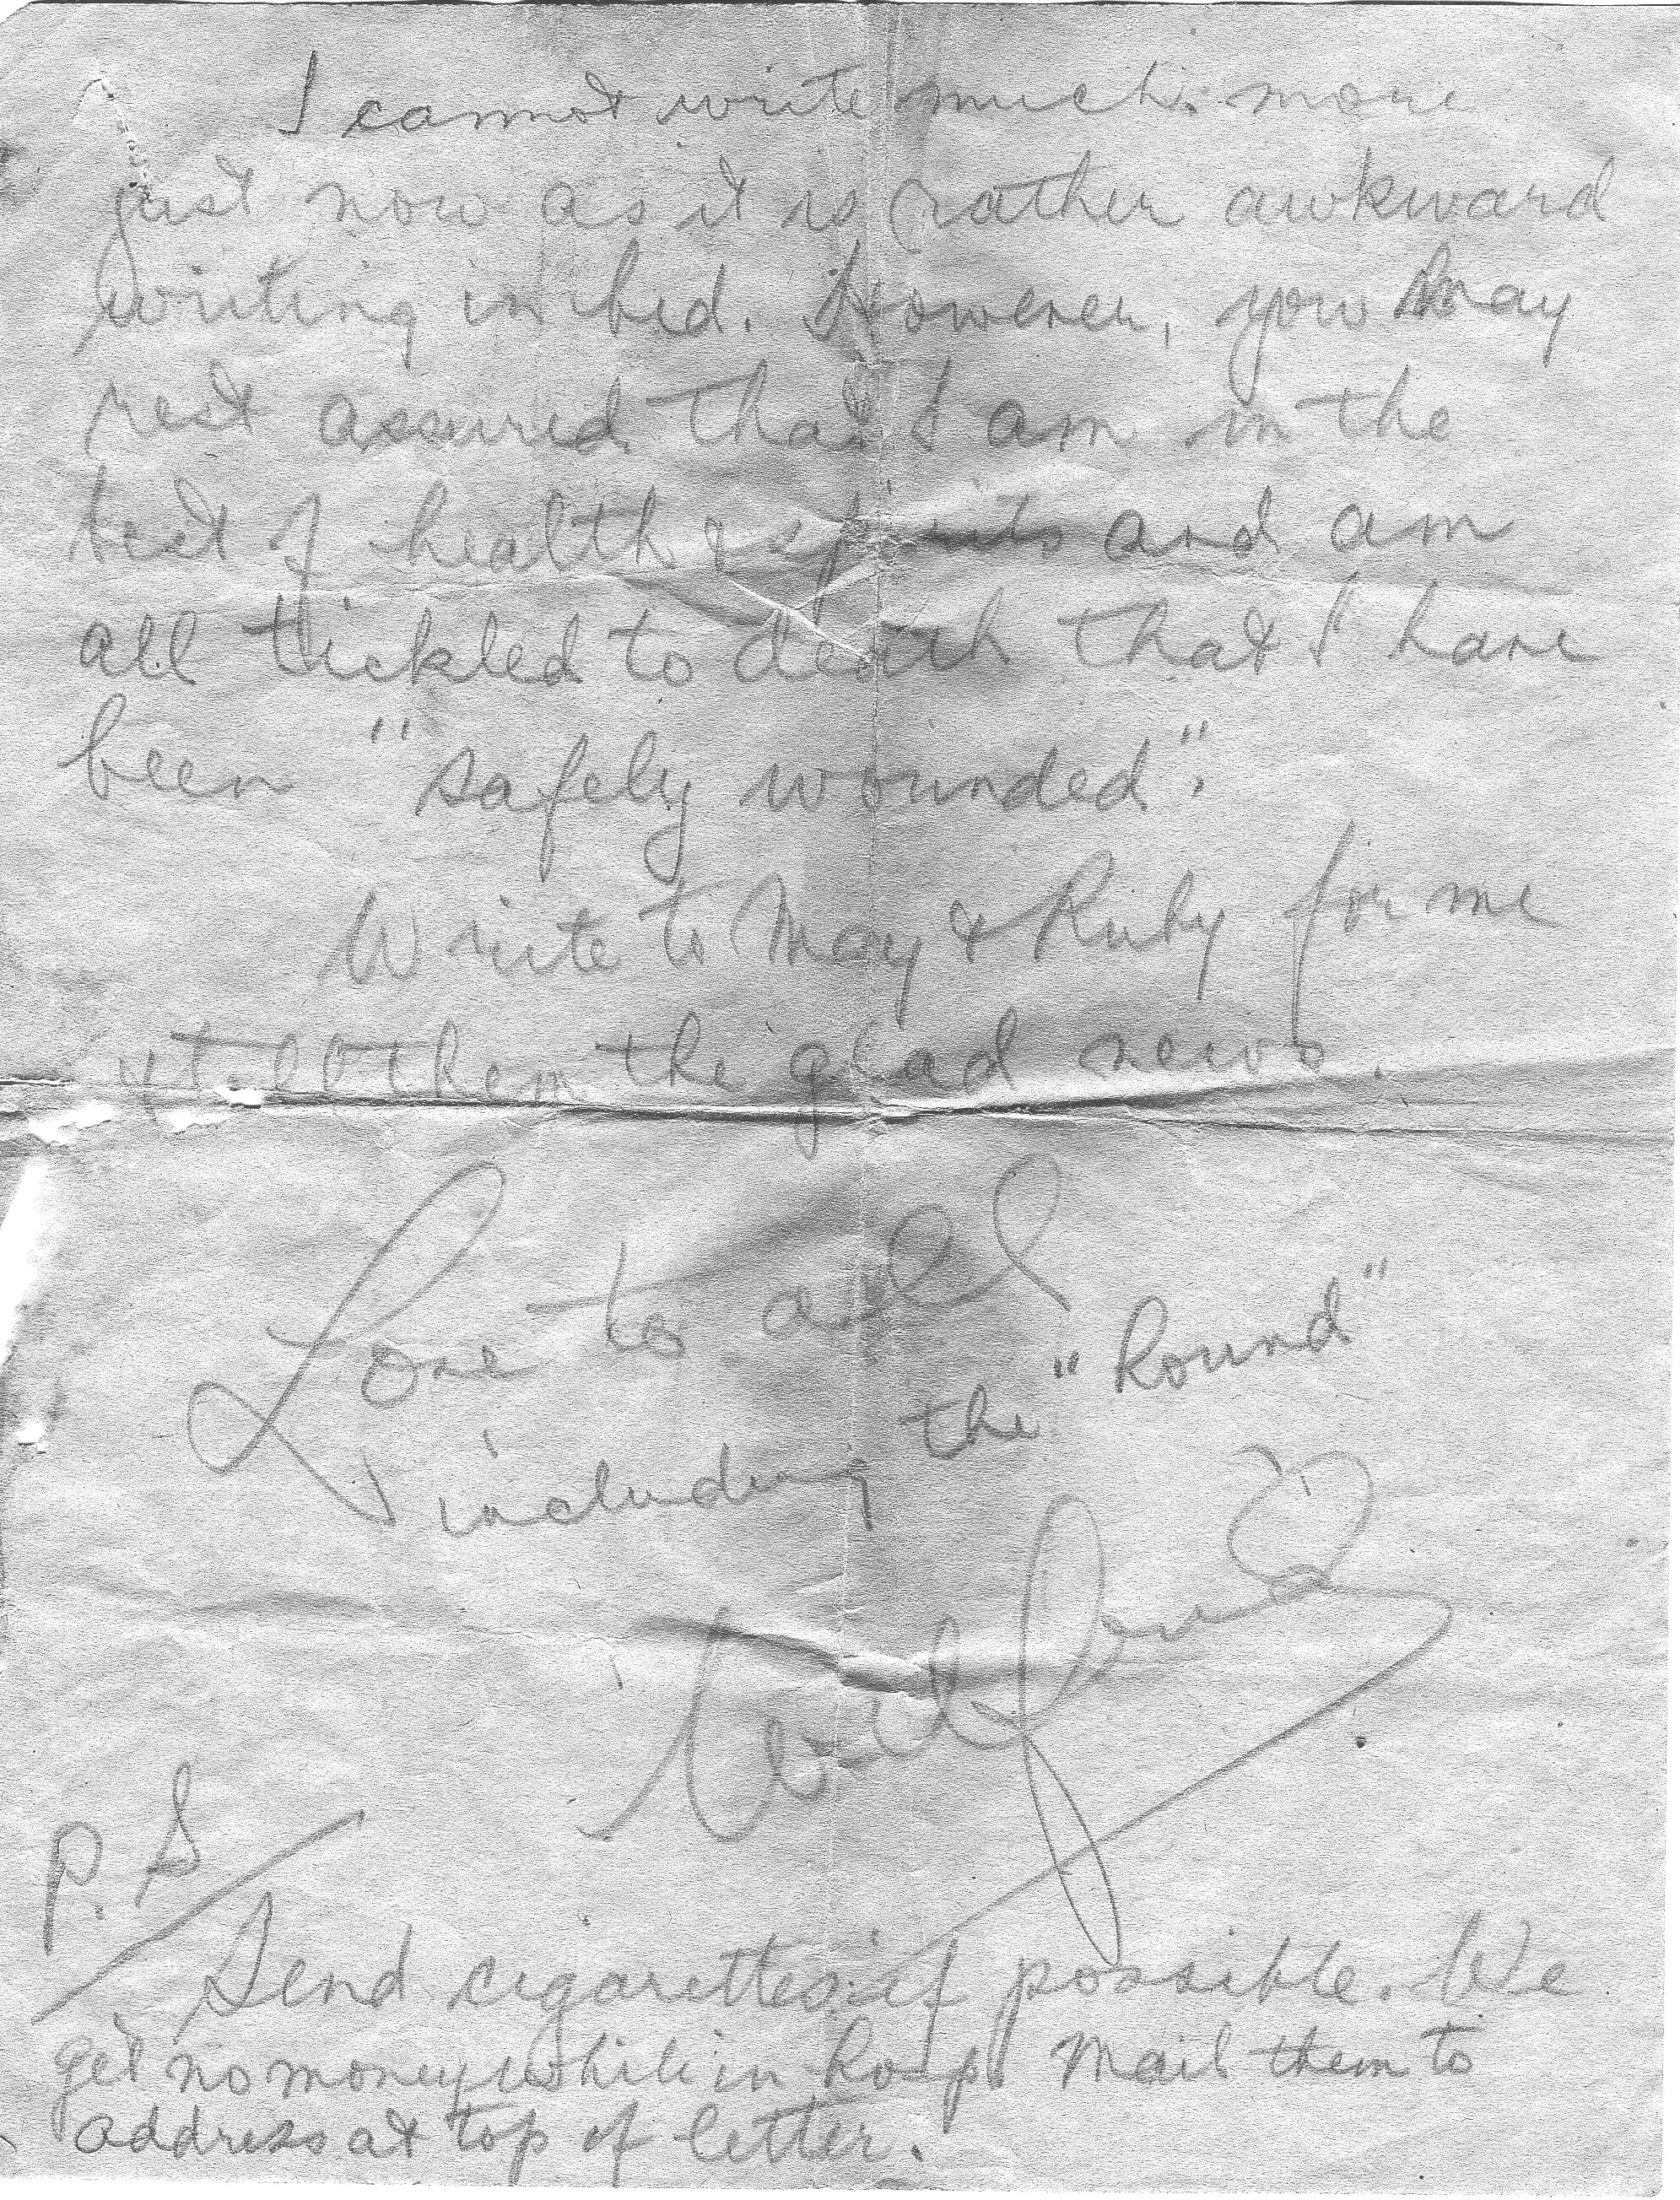 I cannot write much more
just now as it is rather awkward
writing in bed. However, you may
rest assured that I am in the
best of health & spirits and am
all tickled to death that I have
been "safely wounded".
Write to May & Ruby for me
& tell them the glad news.
Love to all
including the "Round"
Wilfred
P.S
Send cigarettes if possible. We
get no money while in hosp. Mail them to
address at top of letter.